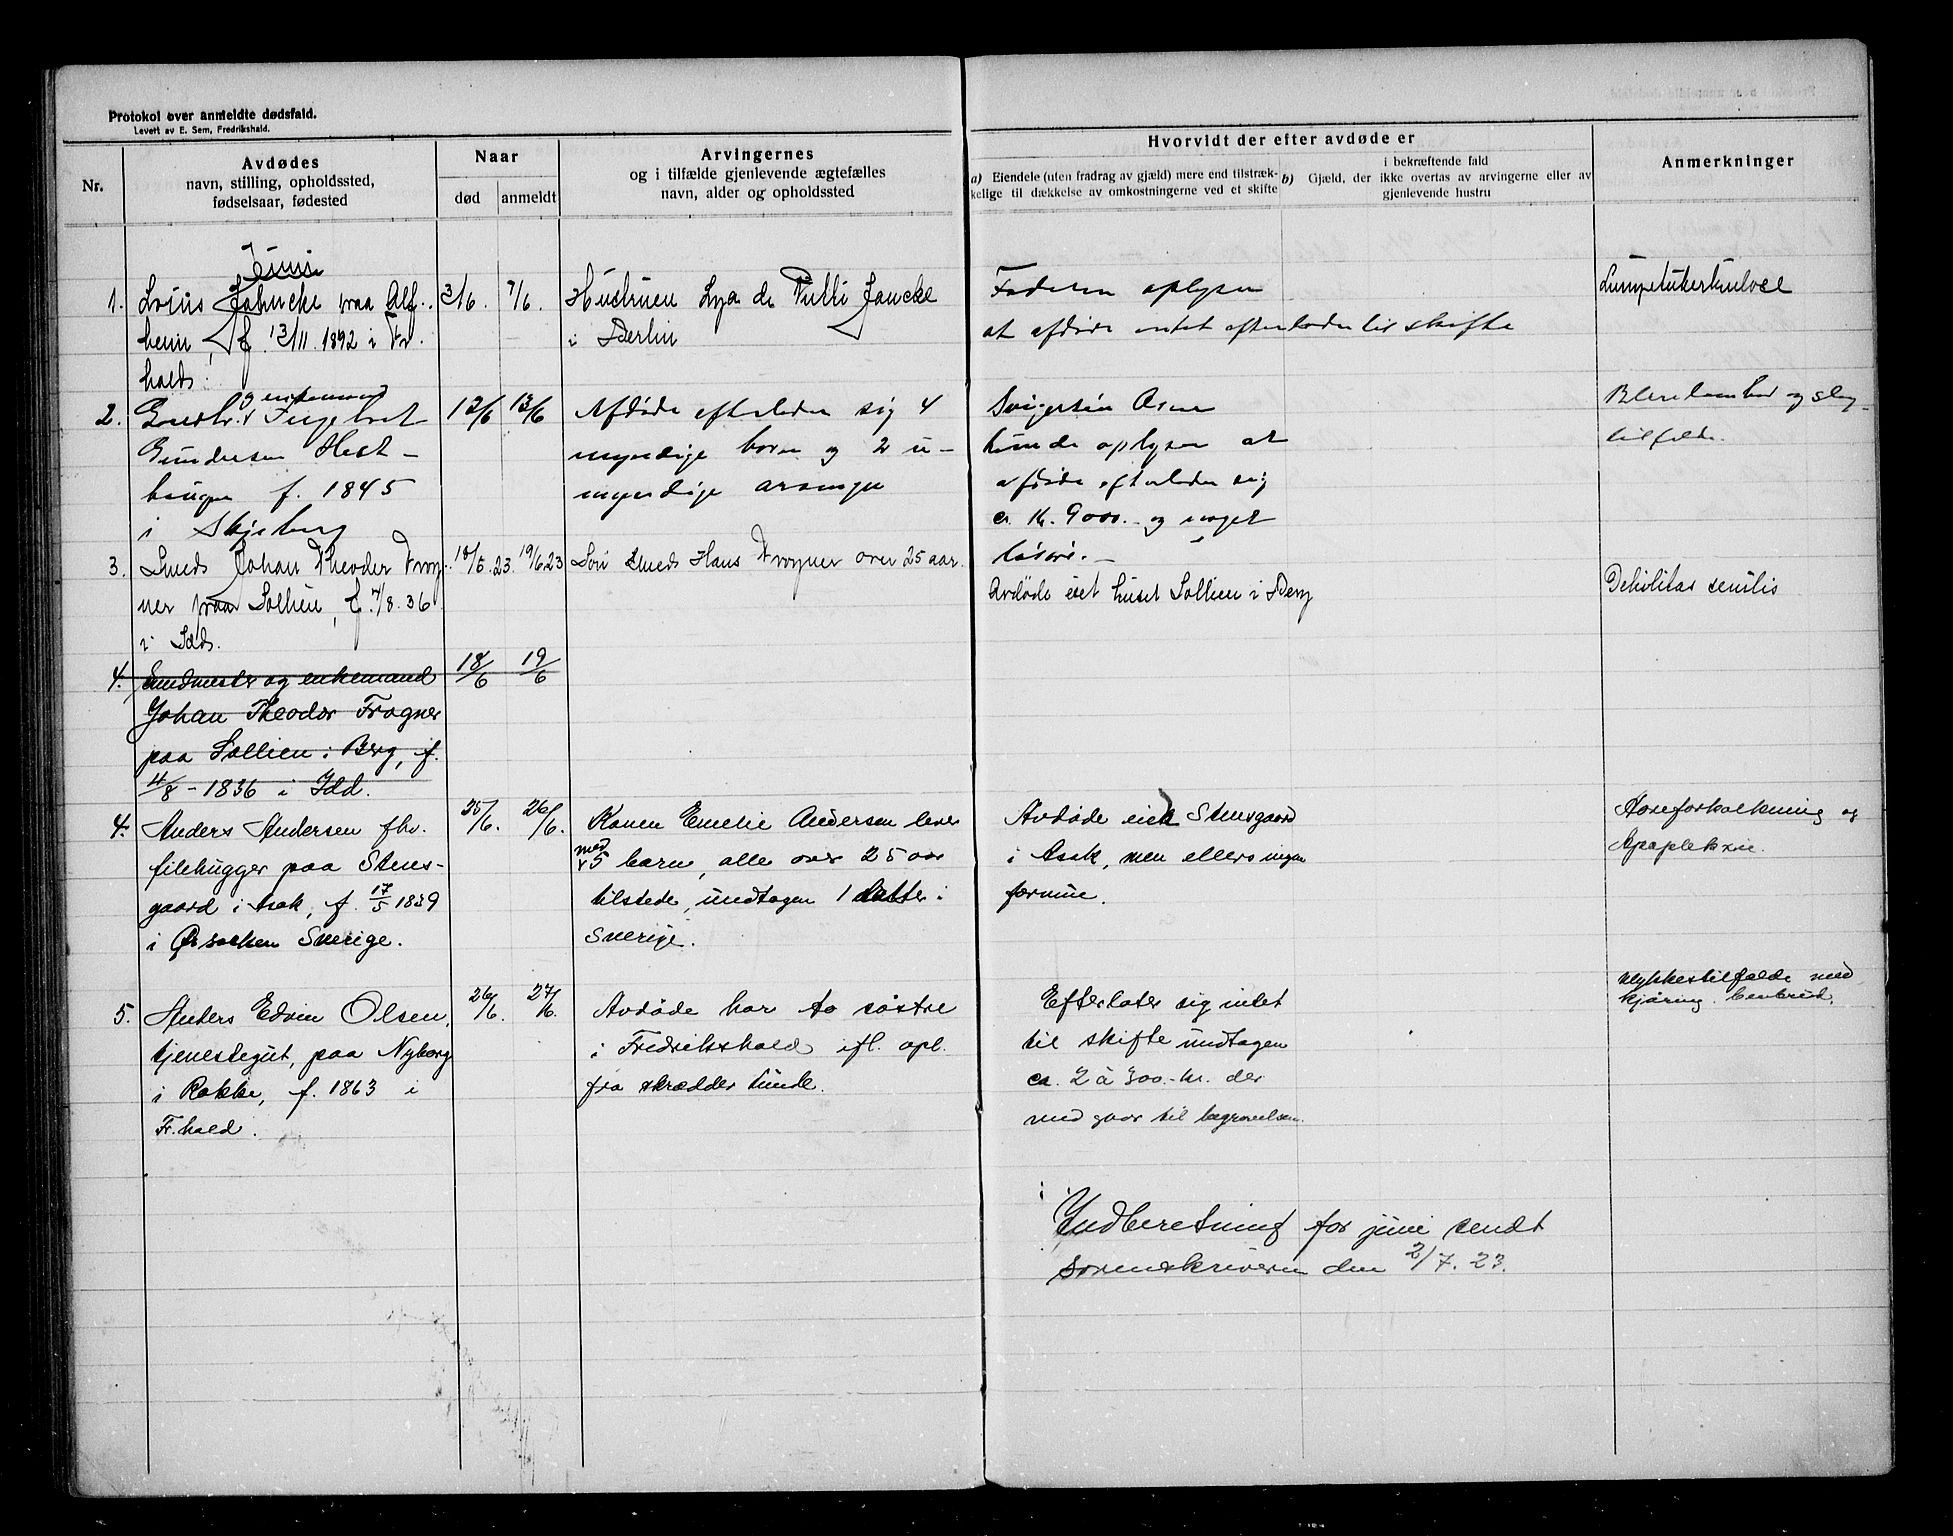 Protokol over anmeldte dødsfald.
Levert av E. Sem, Fredrikshald.
Nr.
Avdødes
navn, stilling, opholdssted,
fødselsaar, fødested
Naar
død
anmeldt
Arvingernes
og i tilfælde gjenlevende ægtefælles
navn, alder og opholdssted
Hvorvidt der efter avdøde er
a) Eiendele (uten fradrag av gjæld) mere end tilstræk-
kelige til dækkelse av omkostningerne ved et skifte
b) Gjæld, der
i bekræftende fald
ikke overtas av arvingerne eller av
gjenlevende hustru
Anmerkninger
Juni
1. Lovius Jahncke paa Alf-
heim, f. 13/11. 1892 i Fr.
hald.
3/6. 7/6.
Hustruen Lya de Putti Jancke
i Berlin
Faderen oplyser
at afdøde intet efterlader til skifte
Lungetuberkulose
2. Gaardbr. og enkemand Ingebret
Gundersen Hest-
haugen f. 1845
i Skjeberg
12/6 13/6
Afdøde efterlader sig 4
myndige born og 2 u-
myndige arvinger
Svigersøn Arne
Lunde oplyser at
afdøde efterlader sig
ca. kr. 9000.- og noget
løsøre.-
Blerelambed og slag-
tilfelde.
3. Smed Johan Theodor Frog-
ner paa Sollien, f. 4/8. 36
i Idd.
18/6. 23. 19/6. 23
Søn smed Hans Frogner over 25 aar.
Avdøde eiet huset Sollien i Berg
Debilitas senilis
4. Smedmester og enkemand
Johan Theodor Frogner
paa Sollien i Berg, f.
4/8 - 1836 i Idd.
18/6 19/6
4. Anders Andersen fhv.
filehugger paa Stens-
gaard i Asak, f. 17/5 1839
i Ør socken Sverige.
25/6. 26/6.
Konen Emelie Andersen lever
med 5 barn, alle over 25 aar
tilstede, undtagen 1 datter i
Sverige.
Avdøde eiet Stensgaard
i Asak, men ellers ingen
formue.
Aareforkalkning og
Apopleksie.
5. Anders Edvin Olsen,
tjenestegut, paa Nyborg
i Rokke, f. 1863 i
Fr.hald.
26/6. 27/6.
Avdøde har to søstre
i Fredrikshald ifl. opl.
fra skrædder Lunde.
Efterlater sig intet
til skifte undtagen
ca. 2 à 300.- kr. der
med gaar til begravelsen.
Ulykkestilfælde med
kjøring. benbrud.
Indberetning for juni sendt
Sorenskriveren den 2/7. 23.